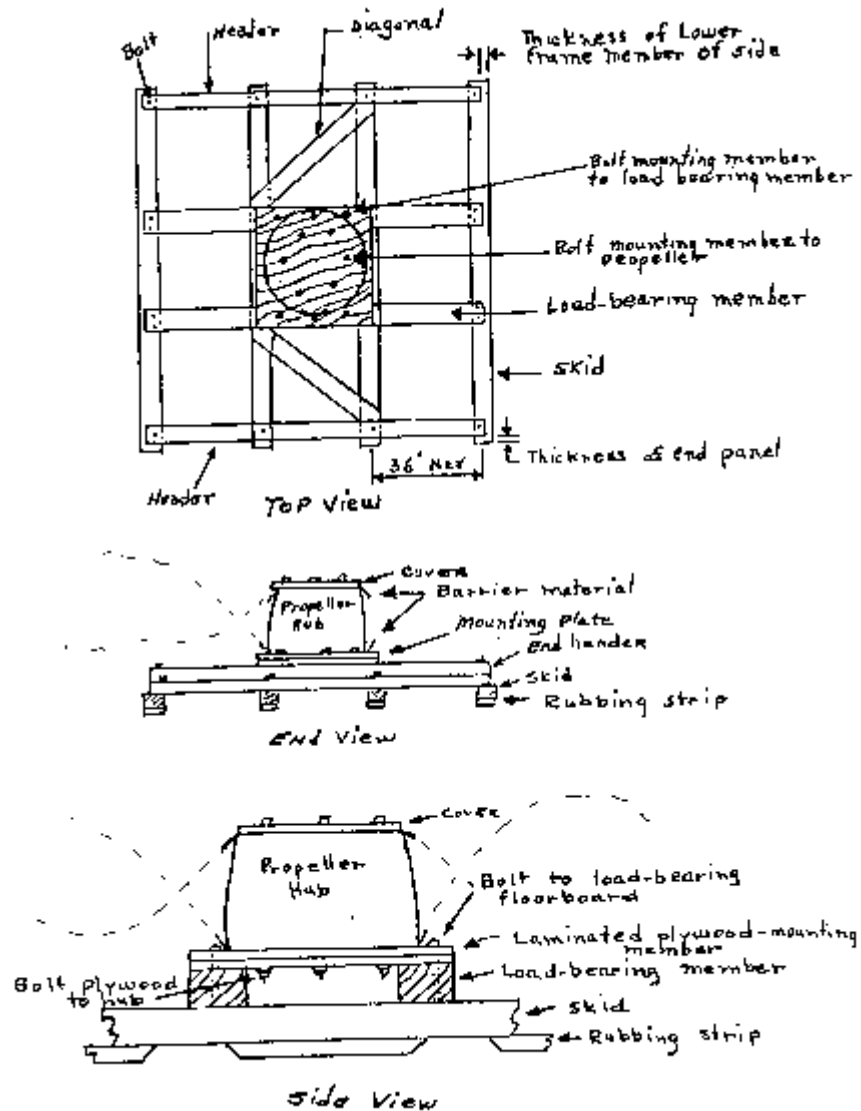 Bolt
Header
Diagonal
Thickness of Lower
frame member of side
Bolt mounting member
to load bearing member
Bolt mounting member to
propeller
Load-bearing member
Skid
Thickness of end panel
36"
Header
Top View
Covers
Barrier material
Propeller
Hub
Mounting Plate
End header
Skid
Rubbing strip
End View
Cover
Propeller
Hub
Bolt to load-bearing
floorboard
Laminated plywood-mounting
member
Load-bearing member
Bolt plywood
to hub
Skid
Rubbing strip
Side View